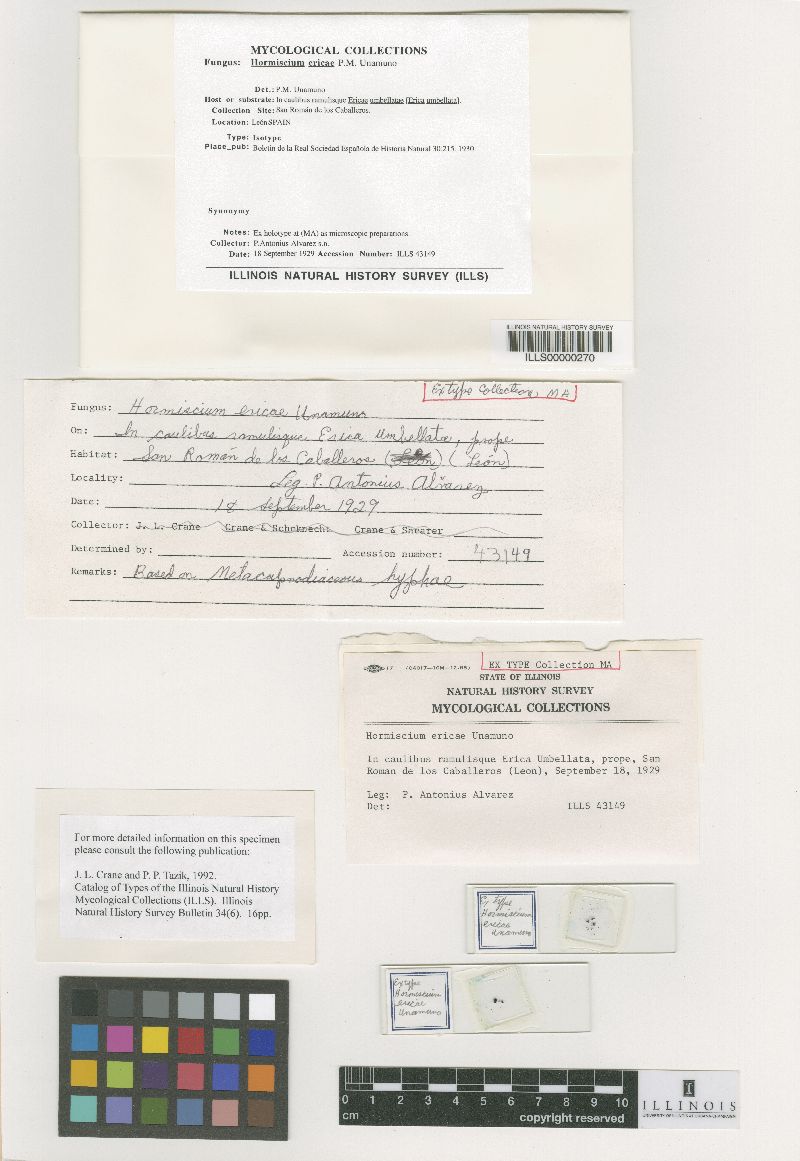 MYCOLOGICAL COLLECTIONS
Fungus: Hormiscium ericae P.M. Unamuno
Det.: P.M. Unamuno
Host or substrate: In caulibus ramulisque Ericae umbellatae [Erica umbellata].
Collection Site: San Román de los Caballeros.
Location: León SPAIN
Type: Isotype
Place_pub: Boletín de la Real Sociedad Española de Historia Natural 30:215. 1930
Synonymy
Notes: Ex holotype at (MA) as microscopic preparations.
Collector: P. Antonius Alvarez s.n.
Date: 18 September 1929 Accession Number: ILLS 43149
ILLINOIS NATURAL HISTORY SURVEY (ILLS)
ILLINOIS NATURAL HISTORY SURVEY
ILLS00000270
Ex type Collection, MA
Fungus: Hormiscium ericae Unamuno
On: In caulibus ramulisque Erica Umbellata, prope
Habitat: San Román de los Caballeros (León) (León)
Locality: Leg P. Antonius Alvarez
Date: 18 September 1929
Collector: J. L. Crane Crane & Schoknecht Crane & Shearer
Determined by:
Accession number: 43149
Remarks: Based on Metacapnodiaceous hyphae
EX TYPE Collection MA
STATE OF ILLINOIS
NATURAL HISTORY SURVEY
MYCOLOGICAL COLLECTIONS
Hormiscium ericae Unamuno
In caulibus ramulisque Erica Umbellata, prope, San
Roman de los Caballeros (Leon), September 18, 1929
Leg: P. Antonius Alvarez
Det: ILLS 43149
For more detailed information on this specimen
please consult the following publication:
J. L. Crane and P. P. Tazik, 1992.
Catalog of Types of the Illinois Natural History
Mycological Collections (ILLS). Illinois
Natural History Survey Bulletin 34(6). 16pp.
Ex type
Hormiscium
ericae
Unamuno
Ex type
Hormiscium
ericae
Unamuno
0 1 2 3 4 5 6 7 8 9 10
cm
copyright reserved
I
ILLINOIS
UNIVERSITY OF ILLINOIS AT URBANA-CHAMPAIGN